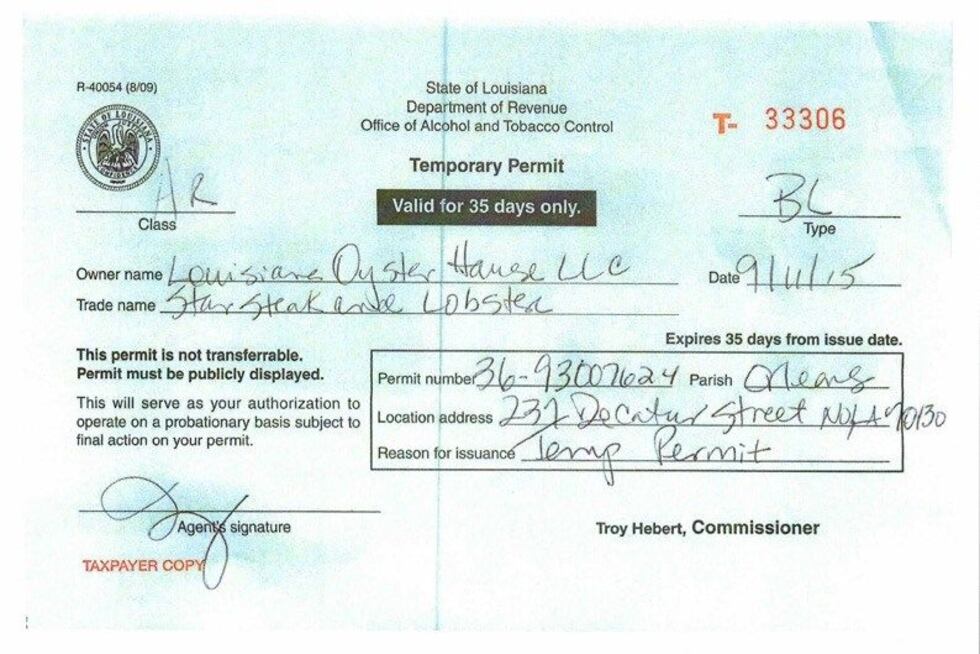 R-40054 (8/09)
State of Louisiana
Department of Revenue
Office of Alcohol and Tobacco Control
T- 33306
STATE OF LOUISIANA
CONFIDENCE
Temporary Permit
Valid for 35 days only.
AR
Class
BL
Type
Owner name Louisiana Oyster House LLC
Date 9/11/15
Trade name Star Steak and Lobster
Expires 35 days from issue date.
This permit is not transferrable.
Permit must be publicly displayed.
This will serve as your authorization to
operate on a probationary basis subject to
final action on your permit.
Permit number 36-93007624 Parish Orleans
Location address 237 Decatur Street NOLA 70130
Reason for issuance Temp Permit
Agent's signature
Troy Hebert, Commissioner
TAXPAYER COPY